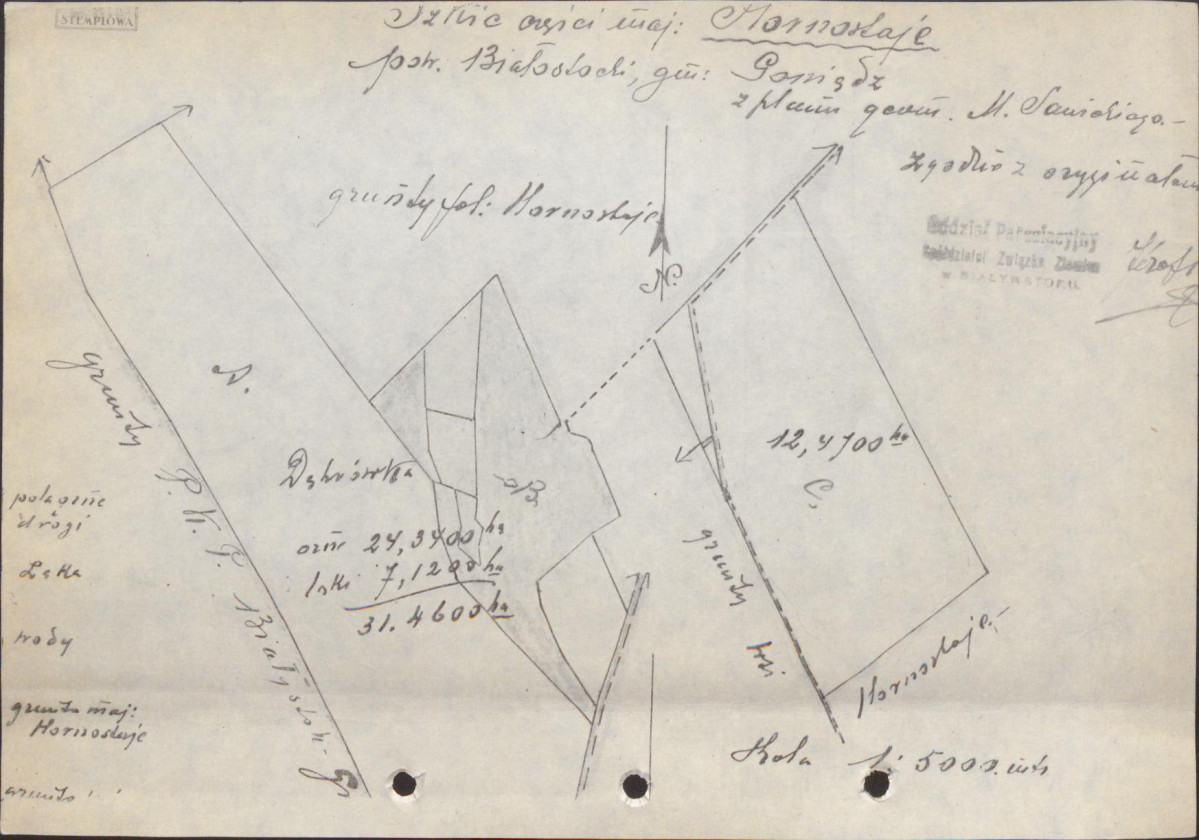 STEMPLOWA
Szkic części maj: Hornostaje
pow. Białostocki, gm: Goniądz
z planu geom. M. Sawickiego.-
zgodnie z oryginałem
Oddział Parcelacyjny
Związku Ziemian
W BIAŁYMSTOKU
grunty fol: Hornostaje
N.
A.
grunty P.K.P. Białystok-Gr
Dąbrówka
B
orne 24,3400 ha
łąki 7,1200 ha
31.4600 ha
12,4700 ha
C,
grunty wsi Hornostaje.
polaorne
drogi
Łąka
wody
grunta maj:
Hornostaje
grunta " "
Skala 1: 5000. mtr